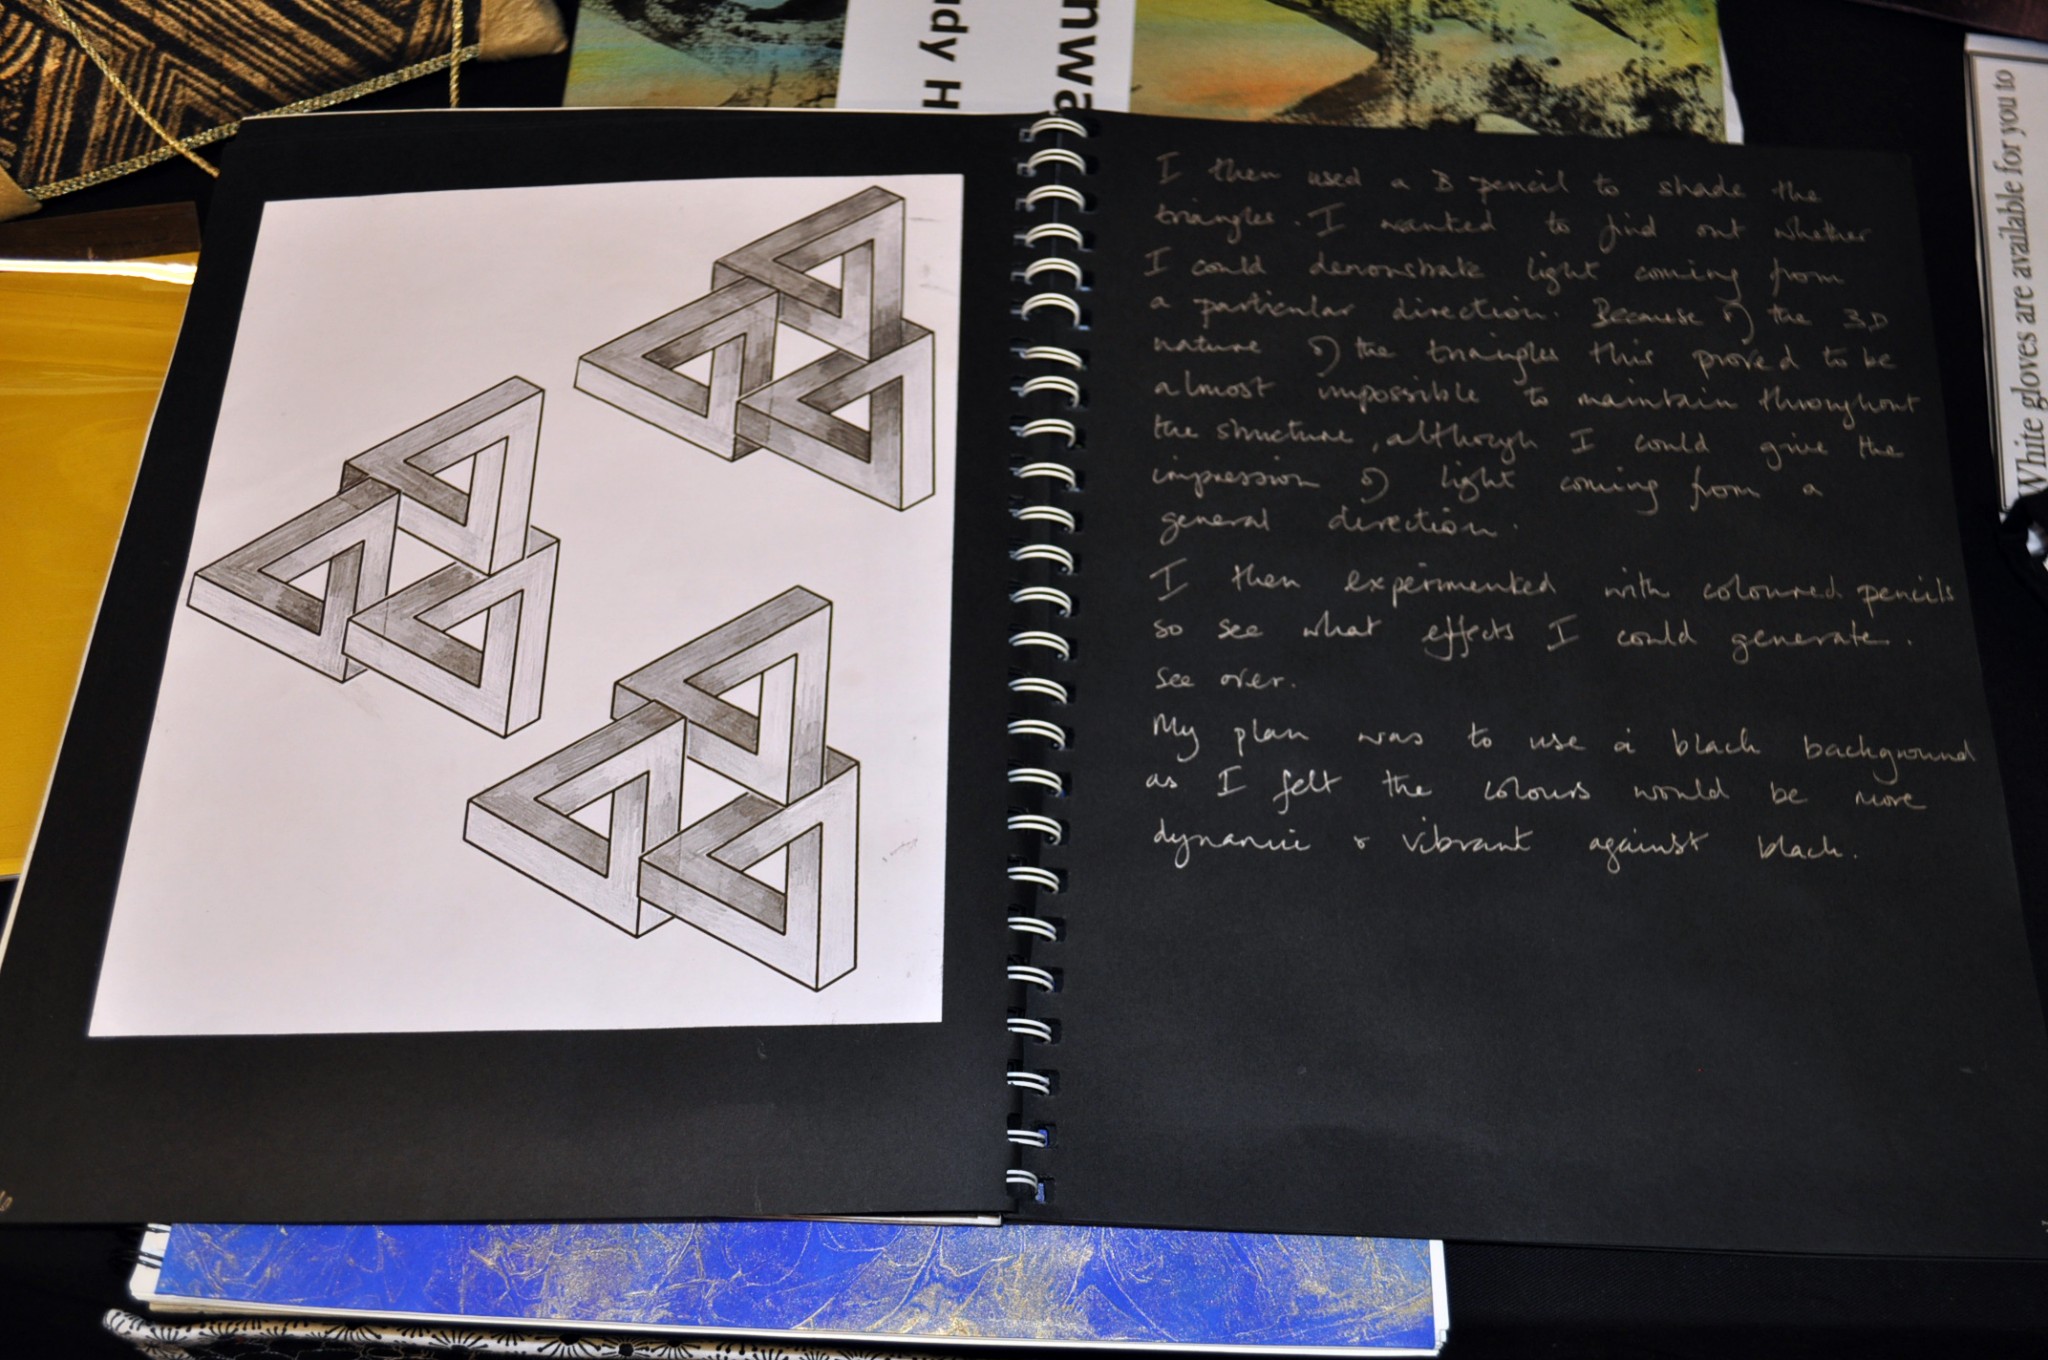 nwa
udy H
White gloves are available for you to
I then used a B pencil to shade the
triangles. I wanted to find out whether
I could demonstrate light coming from
a particular direction. Because of the 3D
nature of the triangles this proved to be
almost impossible to maintain throughout
the structure, although I could give the
impression of light coming from a
general direction.
I then experimented with coloured pencils
so see what effects I could generate.
see over.
My plan was to use a black background
as I felt the colours would be more
dynamic & vibrant against black.